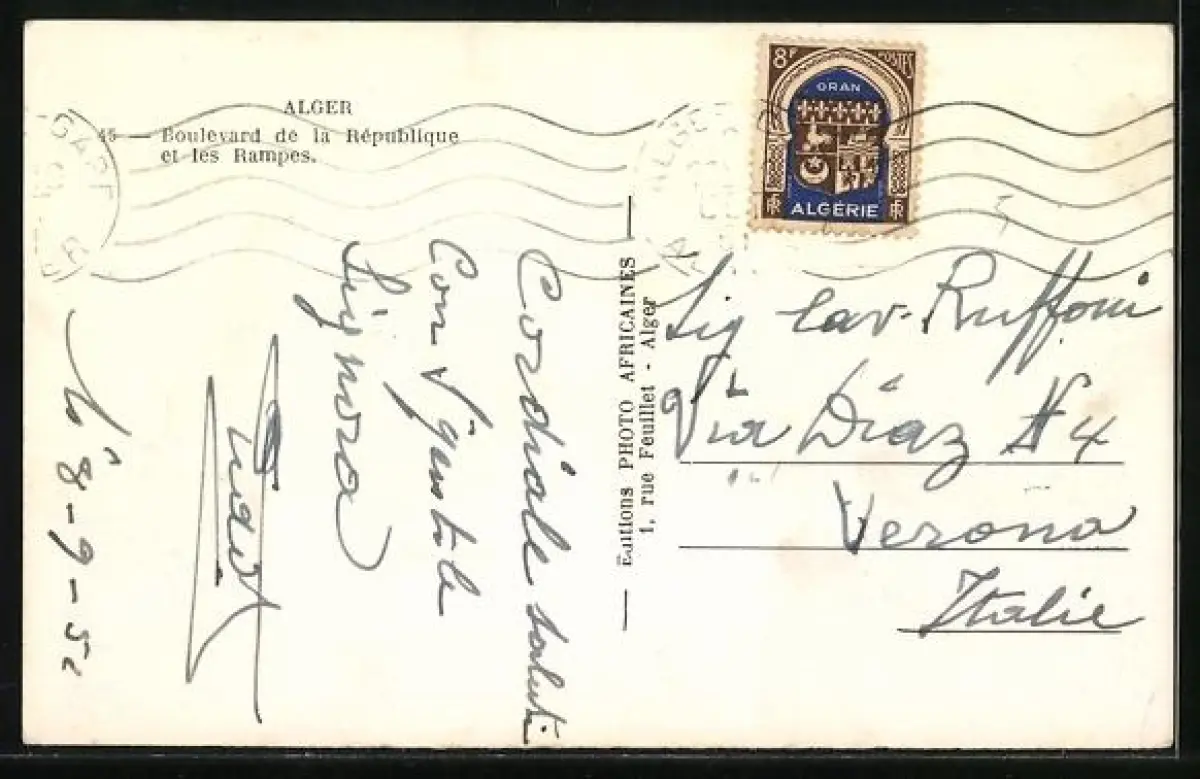 ALGER
45 — Boulevard de la République
et les Rampes.
8F POSTES
ORAN
ALGÉRIE
RF RF
ALGER
GARE
Editions PHOTO AFRICAINES
1, rue Feuillet - Alger
Cordiale saluti
Con V gentile
Signora
8-9-52
Sig Cav. Ruffoni
Via Diaz N 4
Verona
Italie